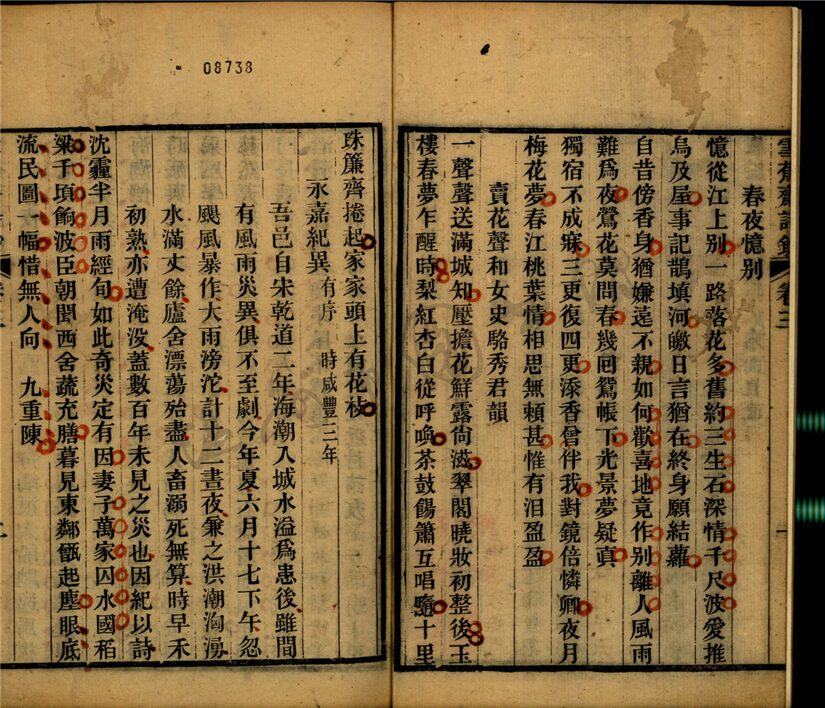 雪蕉齋詩鈔 卷三 一
春夜憶別
憶從江上別一路落花多舊約三生石深情千尺波愛推
烏及屋事記鵲填河皦日言猶在終身願結蘿
自昔傍香身猶嫌遠不親如何歡喜地竟作別離人風雨
難爲夜鶯花莫問春幾回鴛帳下光景夢疑眞
獨宿不成寐三更復四更添香曾伴我對鏡倍憐卿夜月
梅花夢春江桃葉情相思無賴甚惟有泪盈盈
賣花聲和女史駱秀君韻
一聲聲送滿城知壓擔花鮮露尙滋翠閣曉妝初整後玉
樓春夢乍醒時梨紅杏白從呼喚茶鼓餳簫互唱隨十里
08738
珠簾齊捲起家家頭上有花枝
永嘉紀異 有序 時咸豐三年
吾邑自宋乾道二年海潮入城水溢爲患後雖間
有風雨災異俱不至劇今年夏六月十七下午忽
颶風暴作大雨滂沱計十二晝夜兼之洪潮洶湧
水滿丈餘廬舍漂蕩殆盡人畜溺死無算時早禾
初熟亦遭淹没蓋數百年未見之災也因紀以詩
沈霾半月雨經旬如此奇災定有因妻子萬家囚水國稻
粱千頃飽波臣朝聞西舍蔬充膳暮見東鄰甑起塵眼底
流民圖一幅惜無人向 九重陳